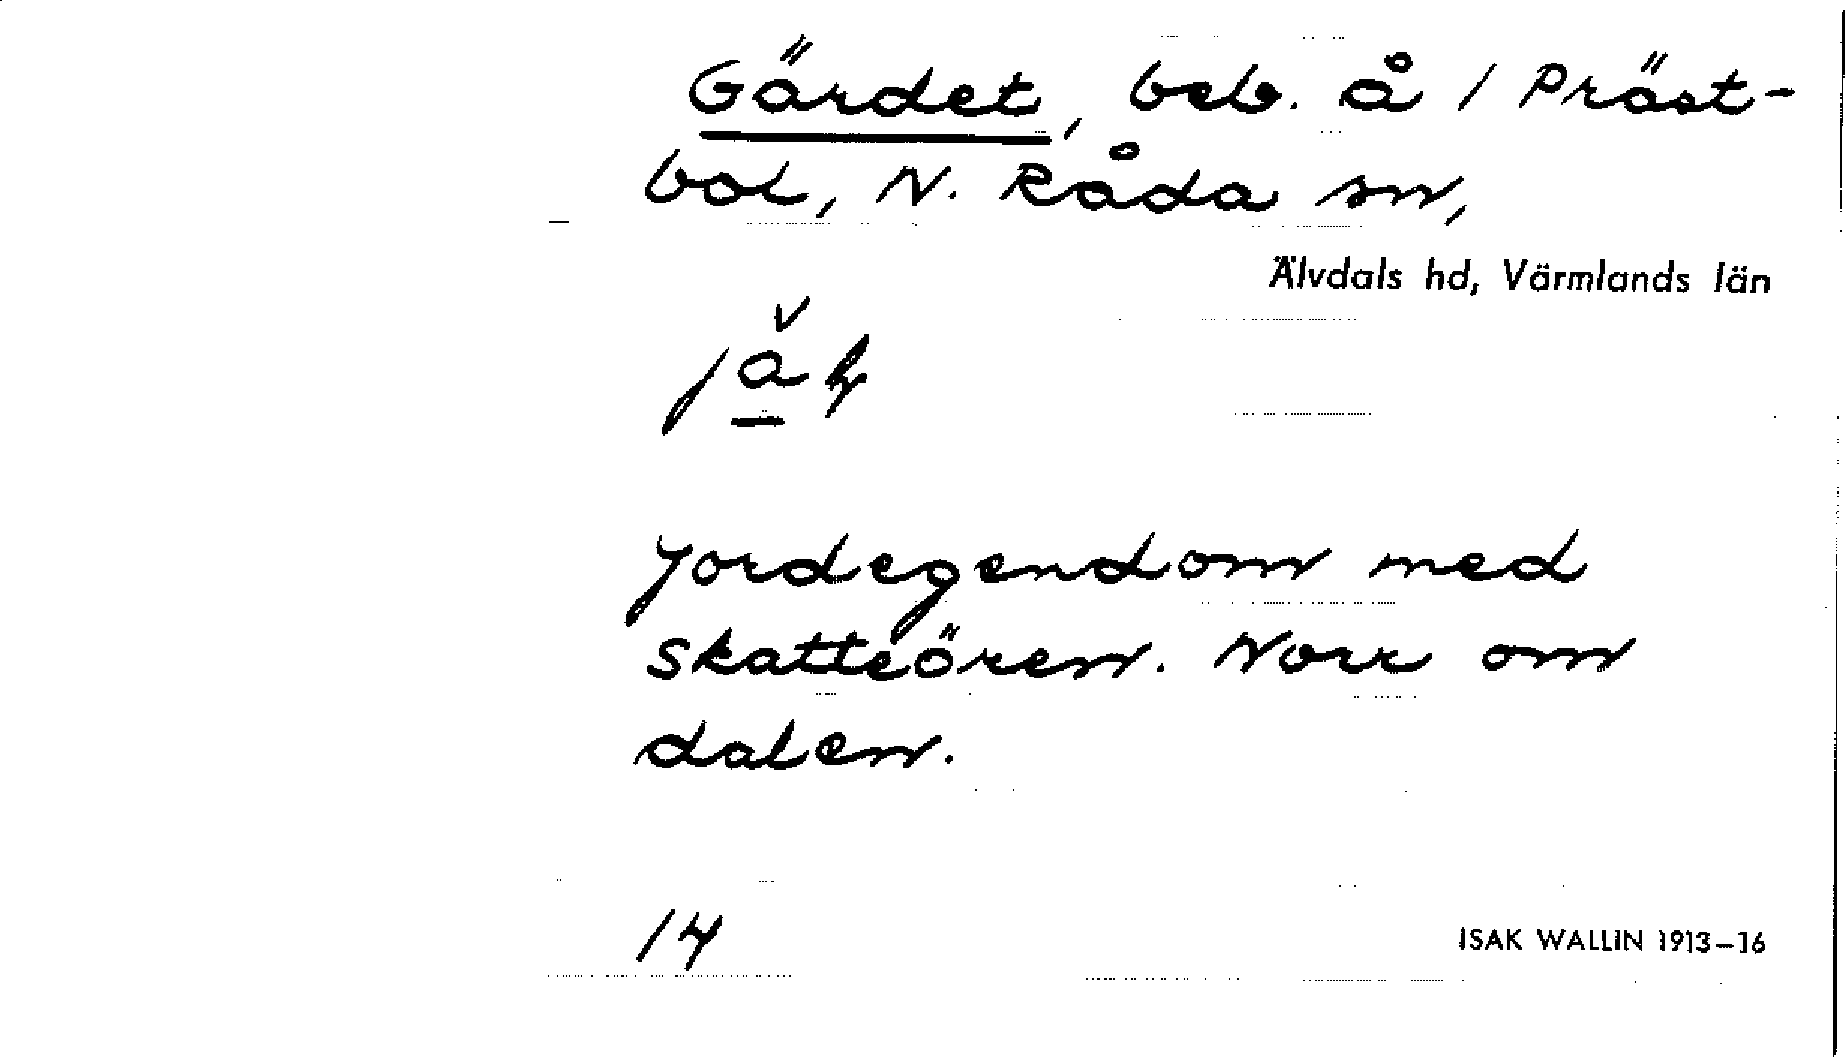 Gärdet, beb. å 1 Präst-
bol, N. Råda sn,
Älvdals hd, Värmlands län
Jordegendom med
skatteören. Norr om
dalen.
14
ISAK WALLIN 1913–16